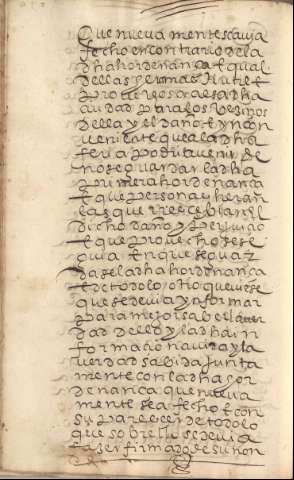 que nueva mente se avia
fecho en contrario de la
dha hordenança E qual
dellas es mas util E
provechosa a esa dha
çiudad E para los vezinos
della y el daño E yncon
veniente que a la dha
se podria venir de
no se guardar la dha
primera hordenança
E que personas heran
las que rreçebian el
dicho daño y perjuizio
E que provecho se se
guia En que se guar
dase la dha hordenança
E de todo lo otro que viese
que se devia ynformar
para mejor saber la ver
dad dello y la dha in
formaçion avida y la
verdad sabida junta
mente con la dha hor
denança que nueva
mente sea fecho E con
su paresçer de todo lo
que sobrello se devia
fazer firmado de su non